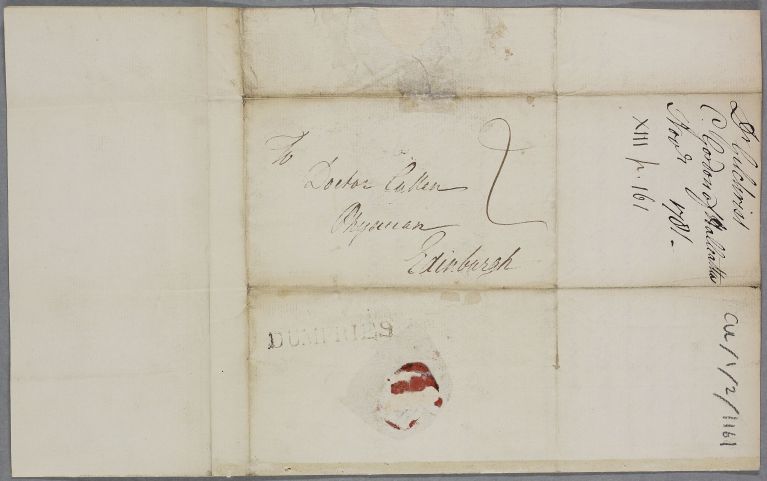 To
Doctor Cullen
Physician
Edinburgh
2
DUMFRIES
Dr Gilchrist
C. Gordon of Halleaths
Novr 1781.
XIII p. 161
CUL/1/2/1161